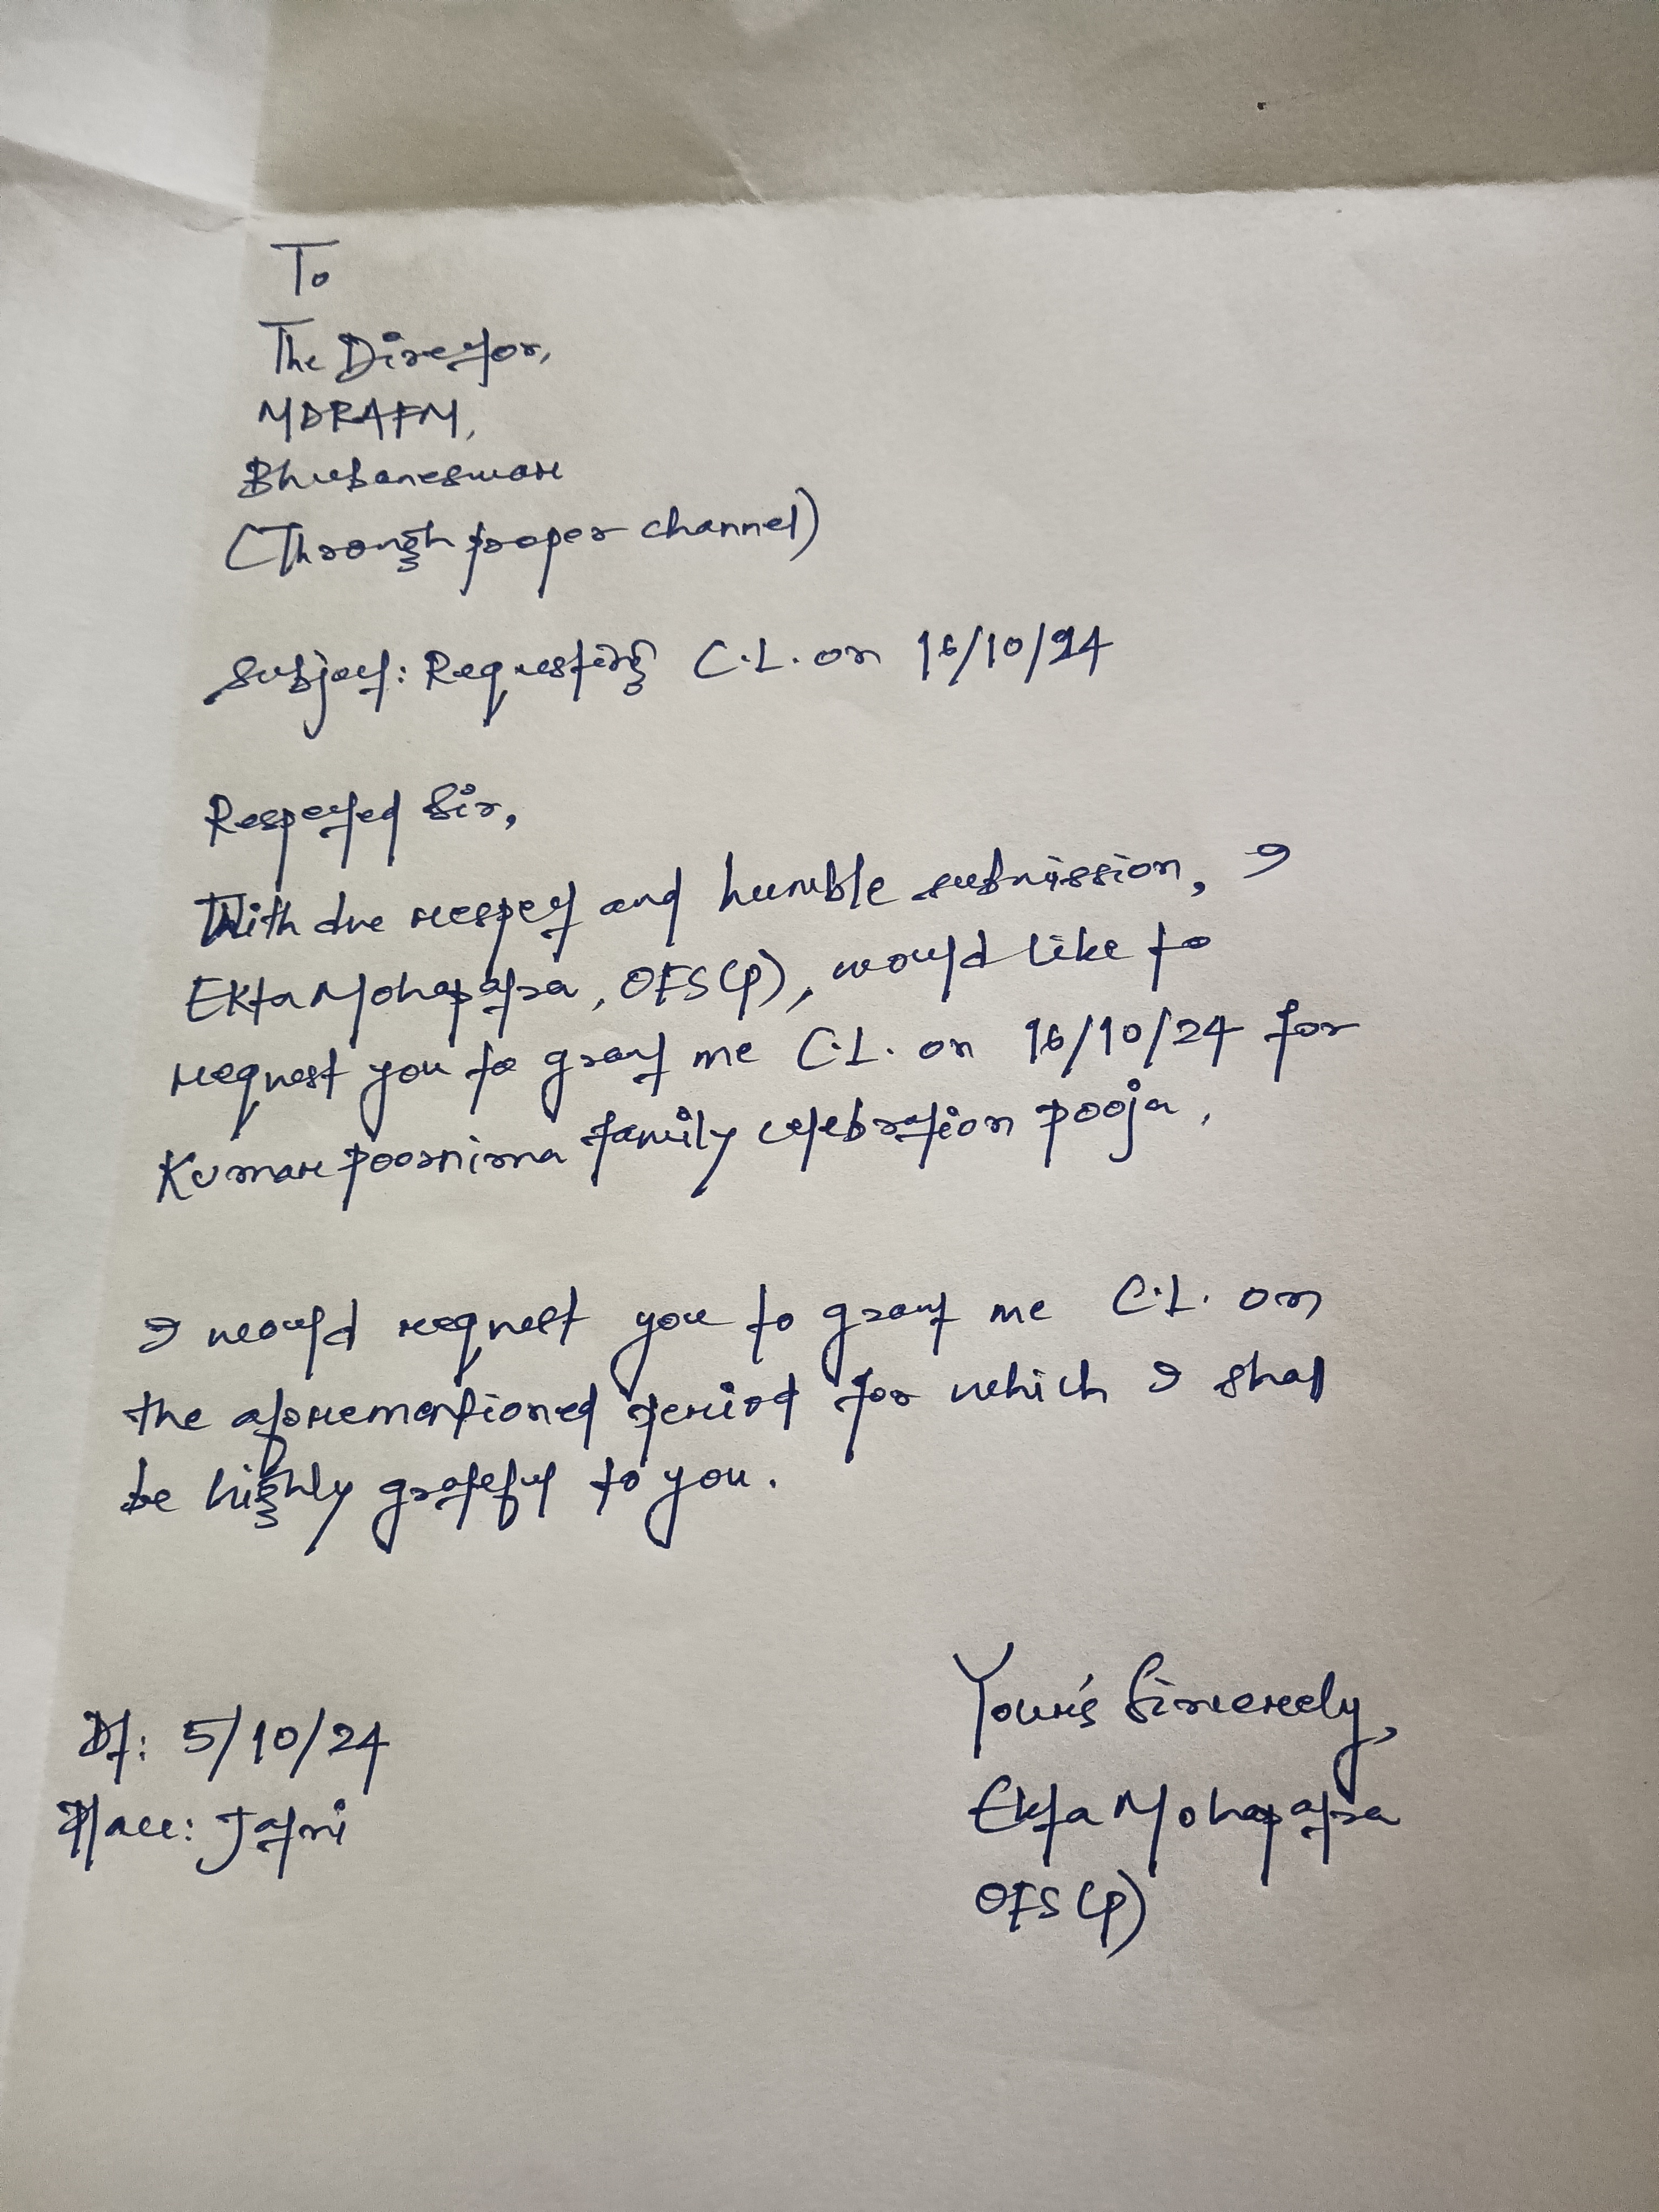 To
The Director,
MDRAFM,
Bhubaneswar
(Through proper channel)
Subject: Requesting C.L. on 16/10/24
Respected Sir,
With due respect and humble submission, I
Ekta Mohapatra, OFS(P), would like to
request you to grant me C.L. on 16/10/24 for
Kumar Poornima family celebration pooja.
I would request you to grant me C.L. on
the aforementioned period for which I shall
be highly grateful to you.
Dt: 5/10/24
Place: Jatni
Your's Sincerely,
Ekta Mohapatra
OFS(P)